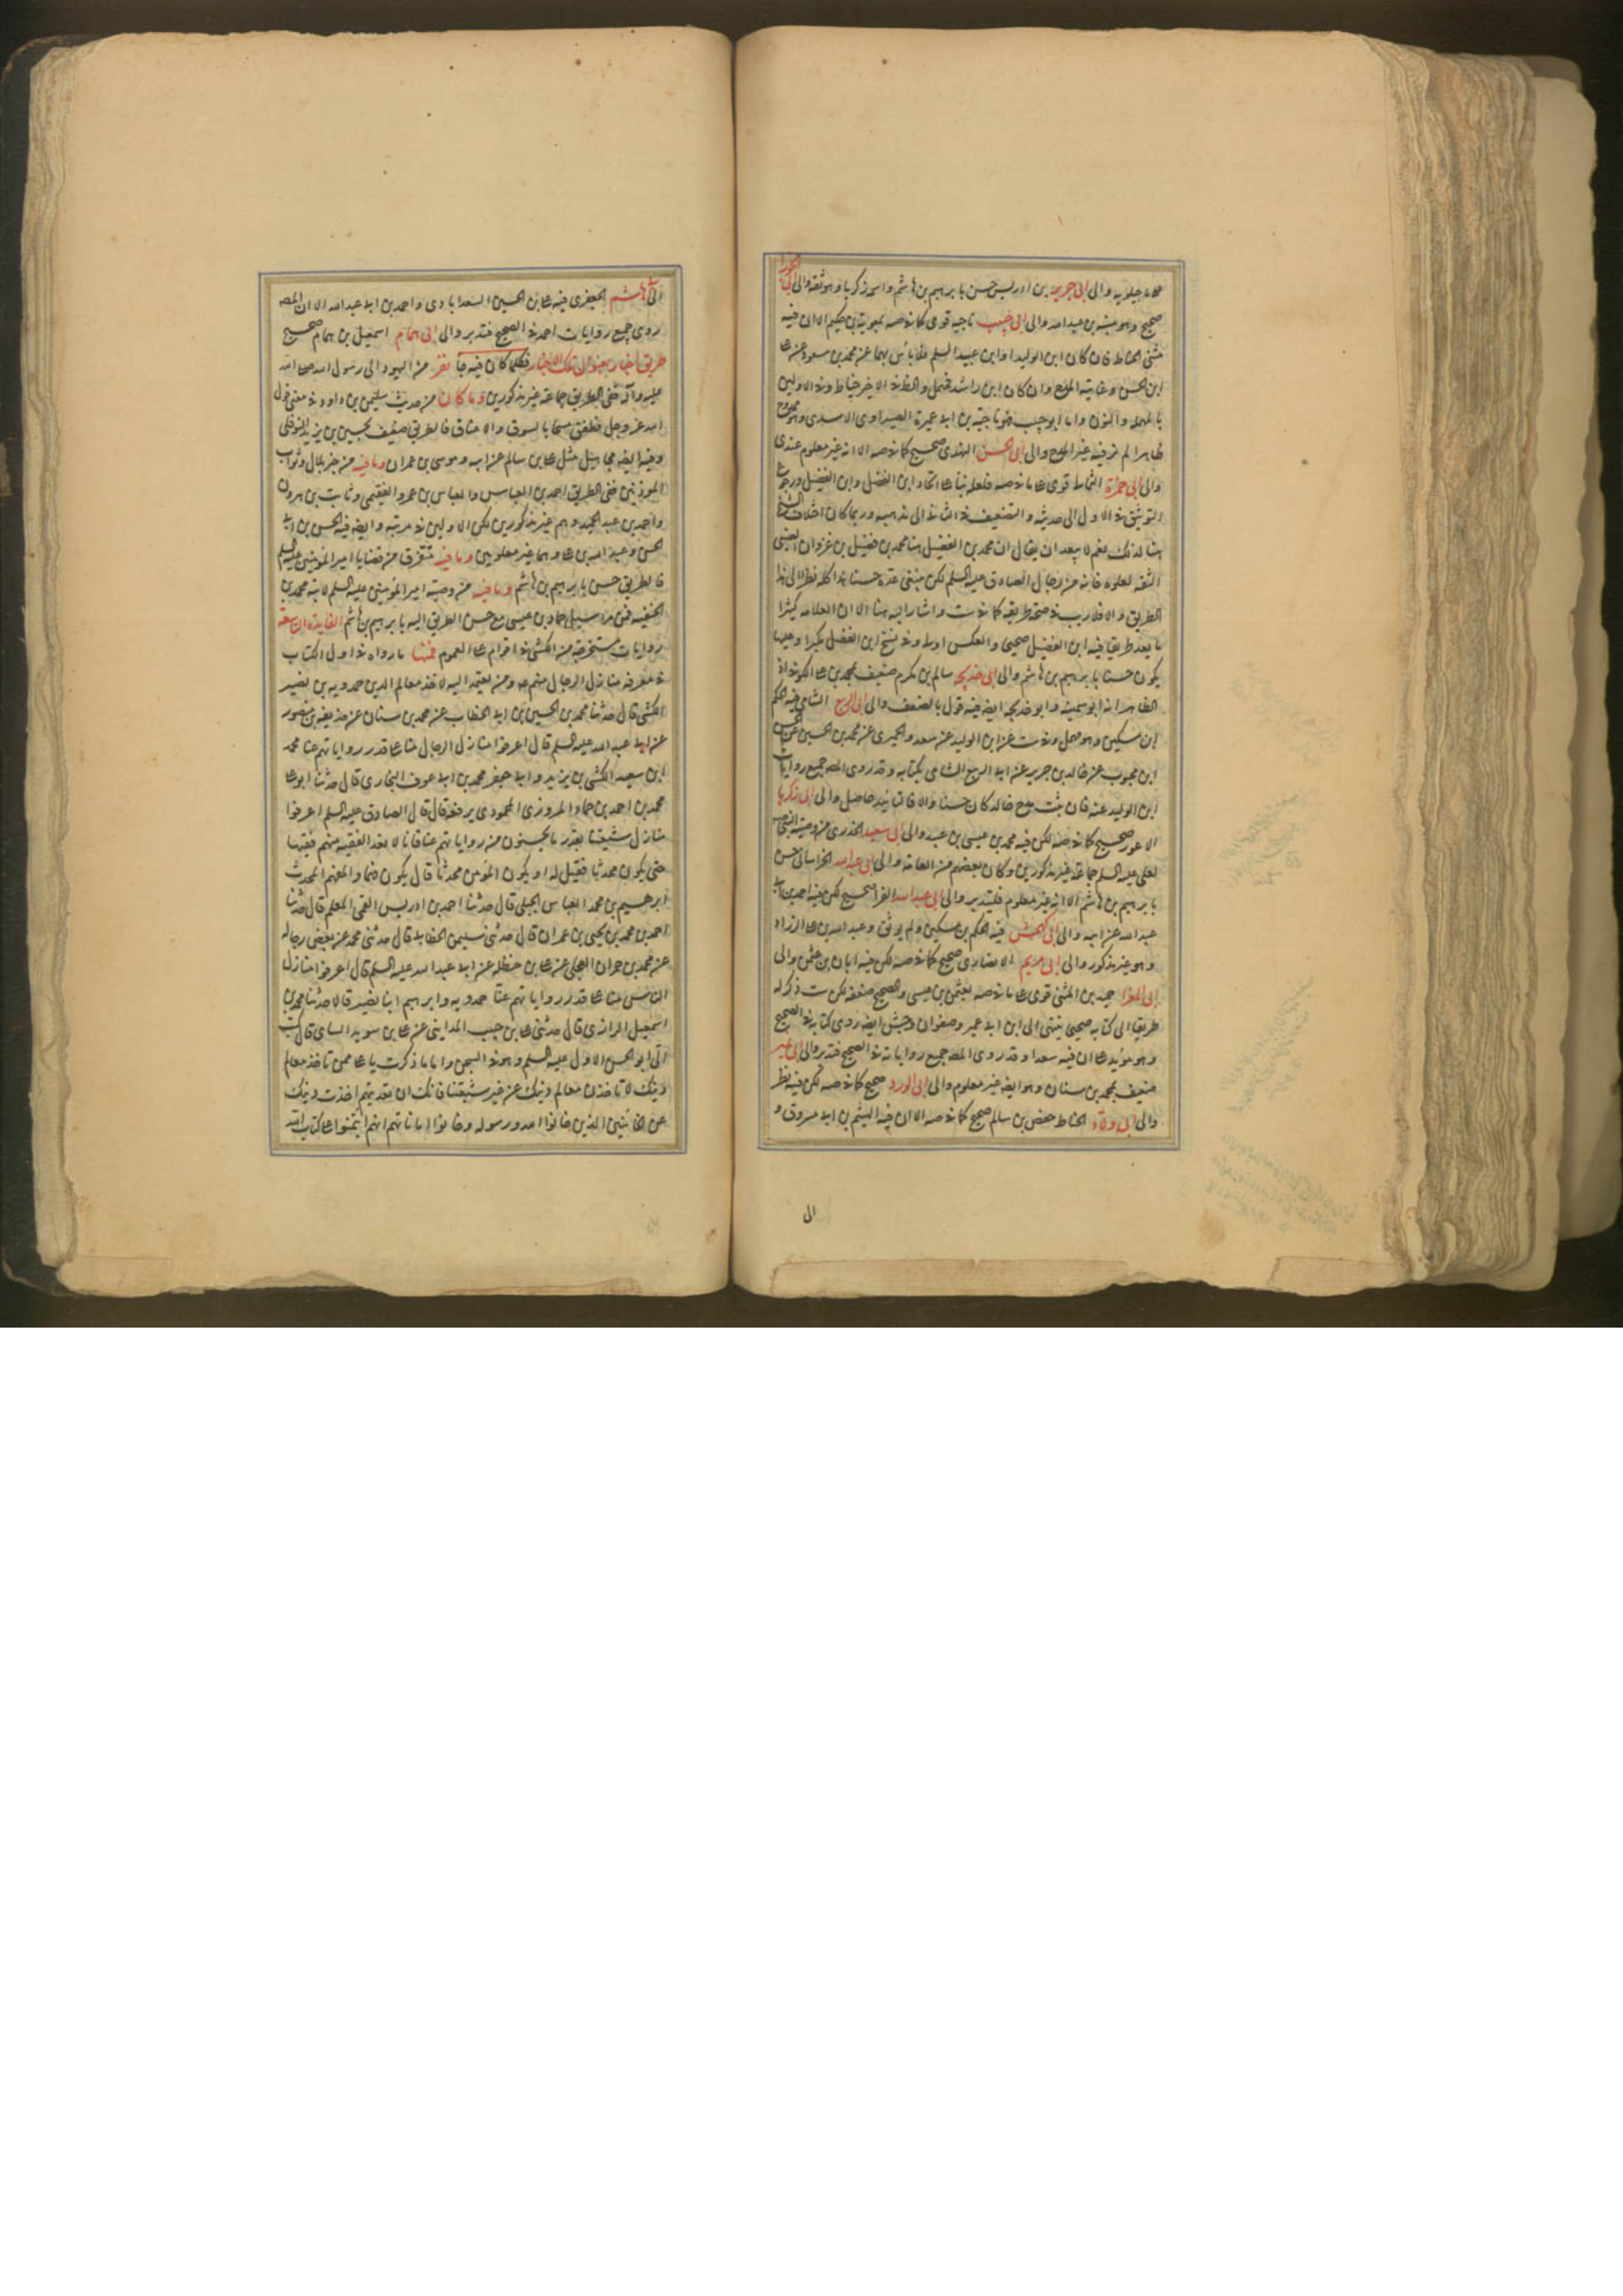 ماجيلويه والى ابى جرير بن ادريس حسن بابرهيم بن هاشم واسمه زكريا وهو ثقة والى ابى الجوزا
صحيح وهو منبه بن عبد الله والى ابى حبيب ناجيه قوى كا فى صه بمعوية بن حكيم الا ان فيه
مثنى الحناط فان كان ابن الوليد او ابن عبد السلم فلا بأس بهما عن محمد بن مسعود عن عا
ابن الحسن وغايته المدح وان كان ابن راشد فمهمل والحظ فى الاخير خياط وفى الاولين
بالمهملة والنون واما ابو حبيب فهو ناجية بن ابى عميرة الصيداوى الاسدى وهو ممدوح
ظاهرا لم نر فيه غير المدح والى ابى الحسن النهدى صحيح كا فى صه الا انه غير معلوم عندى
والى ابى حمزة الثمالى قوى عا ما فى صه فلعله بنا عا اتحاد ابن الفضل وابن الفضيل ورجوع
التوثيق فى الاول الى حديثه والتضعيف فى الثانى الى مذهبه وربما كان اختلاف النسخ
هنا لذلك نعم لا يبعد ان يقال ان محمد بن الفضيل هنا محمد بن فضيل بن غزوان الضبى
الثقه لعلوه فانه من رجال الصادق عليه السلم لكن ينبغى عده حسنا هذا كله نظرا الى هذا
الطريق والا فلا ريب فى صحة طريقه كا فى ست واشار اليه هنا الا ان العلامه كثيرا
ما يعد طريقا فيه ابن الفضيل صحيحى والعكس اوسط وفى نسخ ابن الفضل مكبرا وعليها
يكون حسنا بابرهيم بن هاشم والى ابى خديجه سالم بن مكرم ضعيف بمحمد بن عا الكوفى اذ
الظاهر انه ابو سمينه وابو خديجه ايضه فيه قول بالضعف والى ابى الربيع الشامى فيه الحكم
ابن مسكين وهو مهمل وفى ست عن ابن الوليد عن سعد والحميرى عن محمد بن الحسين عن الحسن
ابن محبوب عن خالد بن جرير عن ابى الربيع الشامى بكتابه وقد روى المصه جميع روايات
ابن الوليد عنه فان ثبت مدح خالد كان حسنا والا فالتاييد حاصل والى ابى زكريا
الاعور صحيح كا فى صه لكن فيه محمد بن عيسى بن عبيد والى ابى سعيد الخدرى من وصية النبى صه
لعلى عليه السلم جماعة غير مذكورين وكان بعضهم من العامة والى ابى عبد الله الخراسانى حسن
بابرهيم بن هاشم الا انه غير معلوم فليتدبر والى ابى عبد الله الفرا صحيح لكن فيه احمد بن ابى
عبد الله عن ابيه والى ابى كهمش فيه الحكم بن مسكين ولم يوثق وعبد الله بن عا الزراد
وهو غير مذكور والى ابى مريم الانصارى صحيح كا فى صه لكن فيه ابان بن عثمن والى
ابى المغرا حميد بن المثنى قوى عا ما فى صه بعثمن بن عيسى والصحيح ضعفه لكن ست ذكر له
طريقا الى كتابه صحيحى ينتهى الى ابن ابى عمير وصفوان وجش ايضه روى كتابه فى الصحيح
وهو مؤيد عا ان فيه سعدا وقد روى المصه جميع رواياته فى الصحيح فتدبر والى ابى نمير
ضعيف بمحمد بن سنان وهو ايضه غير معلوم والى ابى الورد صحيح كا فى صه لكن فيه نظر
والى ابى ولاد الحناط حفص بن سالم صحيح كا فى صه الا ان فيه الهيثم بن ابى مسروق و
الى
الى ابى هاشم الجعفرى فيه عا بن الحسين السعدابادى واحمد بن ابى عبد الله الا ان المصه
روى جميع روايات احمد فى الصحيح فتدبر والى ابى همام اسمعيل بن همام صحيح
طريق اخبار بعنوان تلك الاخبار فكلما كان فيه جا نفر من اليهود الى رسول الله صلى الله
عليه وآله ففى الطريق جماعة غير مذكورين وما كان من حديث سليمن بن داود فى معنى قول
الله عز وجل فطفق مسحا بالسوق والاعناق فالطريق ضعيف بحسين بن يزيد النوفلى
وفيه ايضه مجاهيل مثل عا بن سالم عن ابيه وموسى بن عمران وما فيه من خبر بلال وثواب
الموذنين ففى الطريق احمد بن العباس والعباس بن عمرو الفقيمى وثابت بن هرون
واحمد بن عبد الحميد وهم غير مذكورين لكن الاولين فى مرتبه وايضه فيه الحسن بن ابى
الحسن وعبد الله بن عا وهما غير معلومين وما فيه متفرق من قضايا امير المؤمنين عليه السلم
فالطريق حسن بابرهيم بن هاشم وما فيه من وصية امير المؤمنين عليه السلم لابنه محمد بن
الحنفيه فمن مراسيل حماد بن عيسى مع حسن الطريق اليه بابرهيم بن هاشم الفايدة التاسعة
روايات مستخرجة من الكشى فى اقوام عا العموم فمنها ما رواه فى اول الكتاب
فى معرفة منازل الرجال منهم عه ومن يعتمد اليه لاخذ معالم الدين حمدويه بن نصير
الكشى قال حدثنا محمد بن الحسين بن ابى الخطاب عن محمد بن سنان عن حذيفه بن منصور
عن ابى عبد الله عليه السلم قال اعرفوا منازل الرجال منا عا قدر رواياتهم عنا محمد
ابن سعيد الكشى بن يزيد وابى جعفر محمد بن ابى عوف البخارى قال حدثنا ابو عا
محمد بن احمد بن حماد المروزى المحمودى يرفعه قال قال الصادق عليه السلم اعرفوا
منازل شيعتنا بقدر ما يحسنون من رواياتهم عنا فانا لا نعد الفقيه منهم فقيها
حتى يكون محدثا فقيل له او يكون المؤمن محدثا قال يكون مفهما والمفهم المحدث
ابرهيم بن محمد العباس الجبلى قال حدثنا احمد بن ادريس القمى المعلم قال حدثنا
احمد بن محمد بن يحيى بن عمران قال حدثنى سليمن الخطابى قال حدثنى محمد عن بعض رجاله
عن محمد بن حمران العجلى عن عا بن حنظله عن ابى عبد الله عليه السلم قال اعرفوا منازل
الناس منا عا قدر رواياتهم عنا حمدويه وابرهيم ابنا نصير قالا حدثنا محمد بن
اسمعيل الرازى قال حدثنى عا بن حبيب المداينى عن عا بن سويد السائى قال كتب
الى ابو الحسن الاول عليه السلم وهو فى السجن واما ما ذكرت يا عا ممن تاخذ معالم
دينك لا تاخذن معالم دينك عن غير شيعتنا فانك ان تعديتهم اخذت دينك
عن الخائنين الذين خانوا الله ورسوله وخانوا اماناتهم انهم ايتمنوا عا كتاب الله